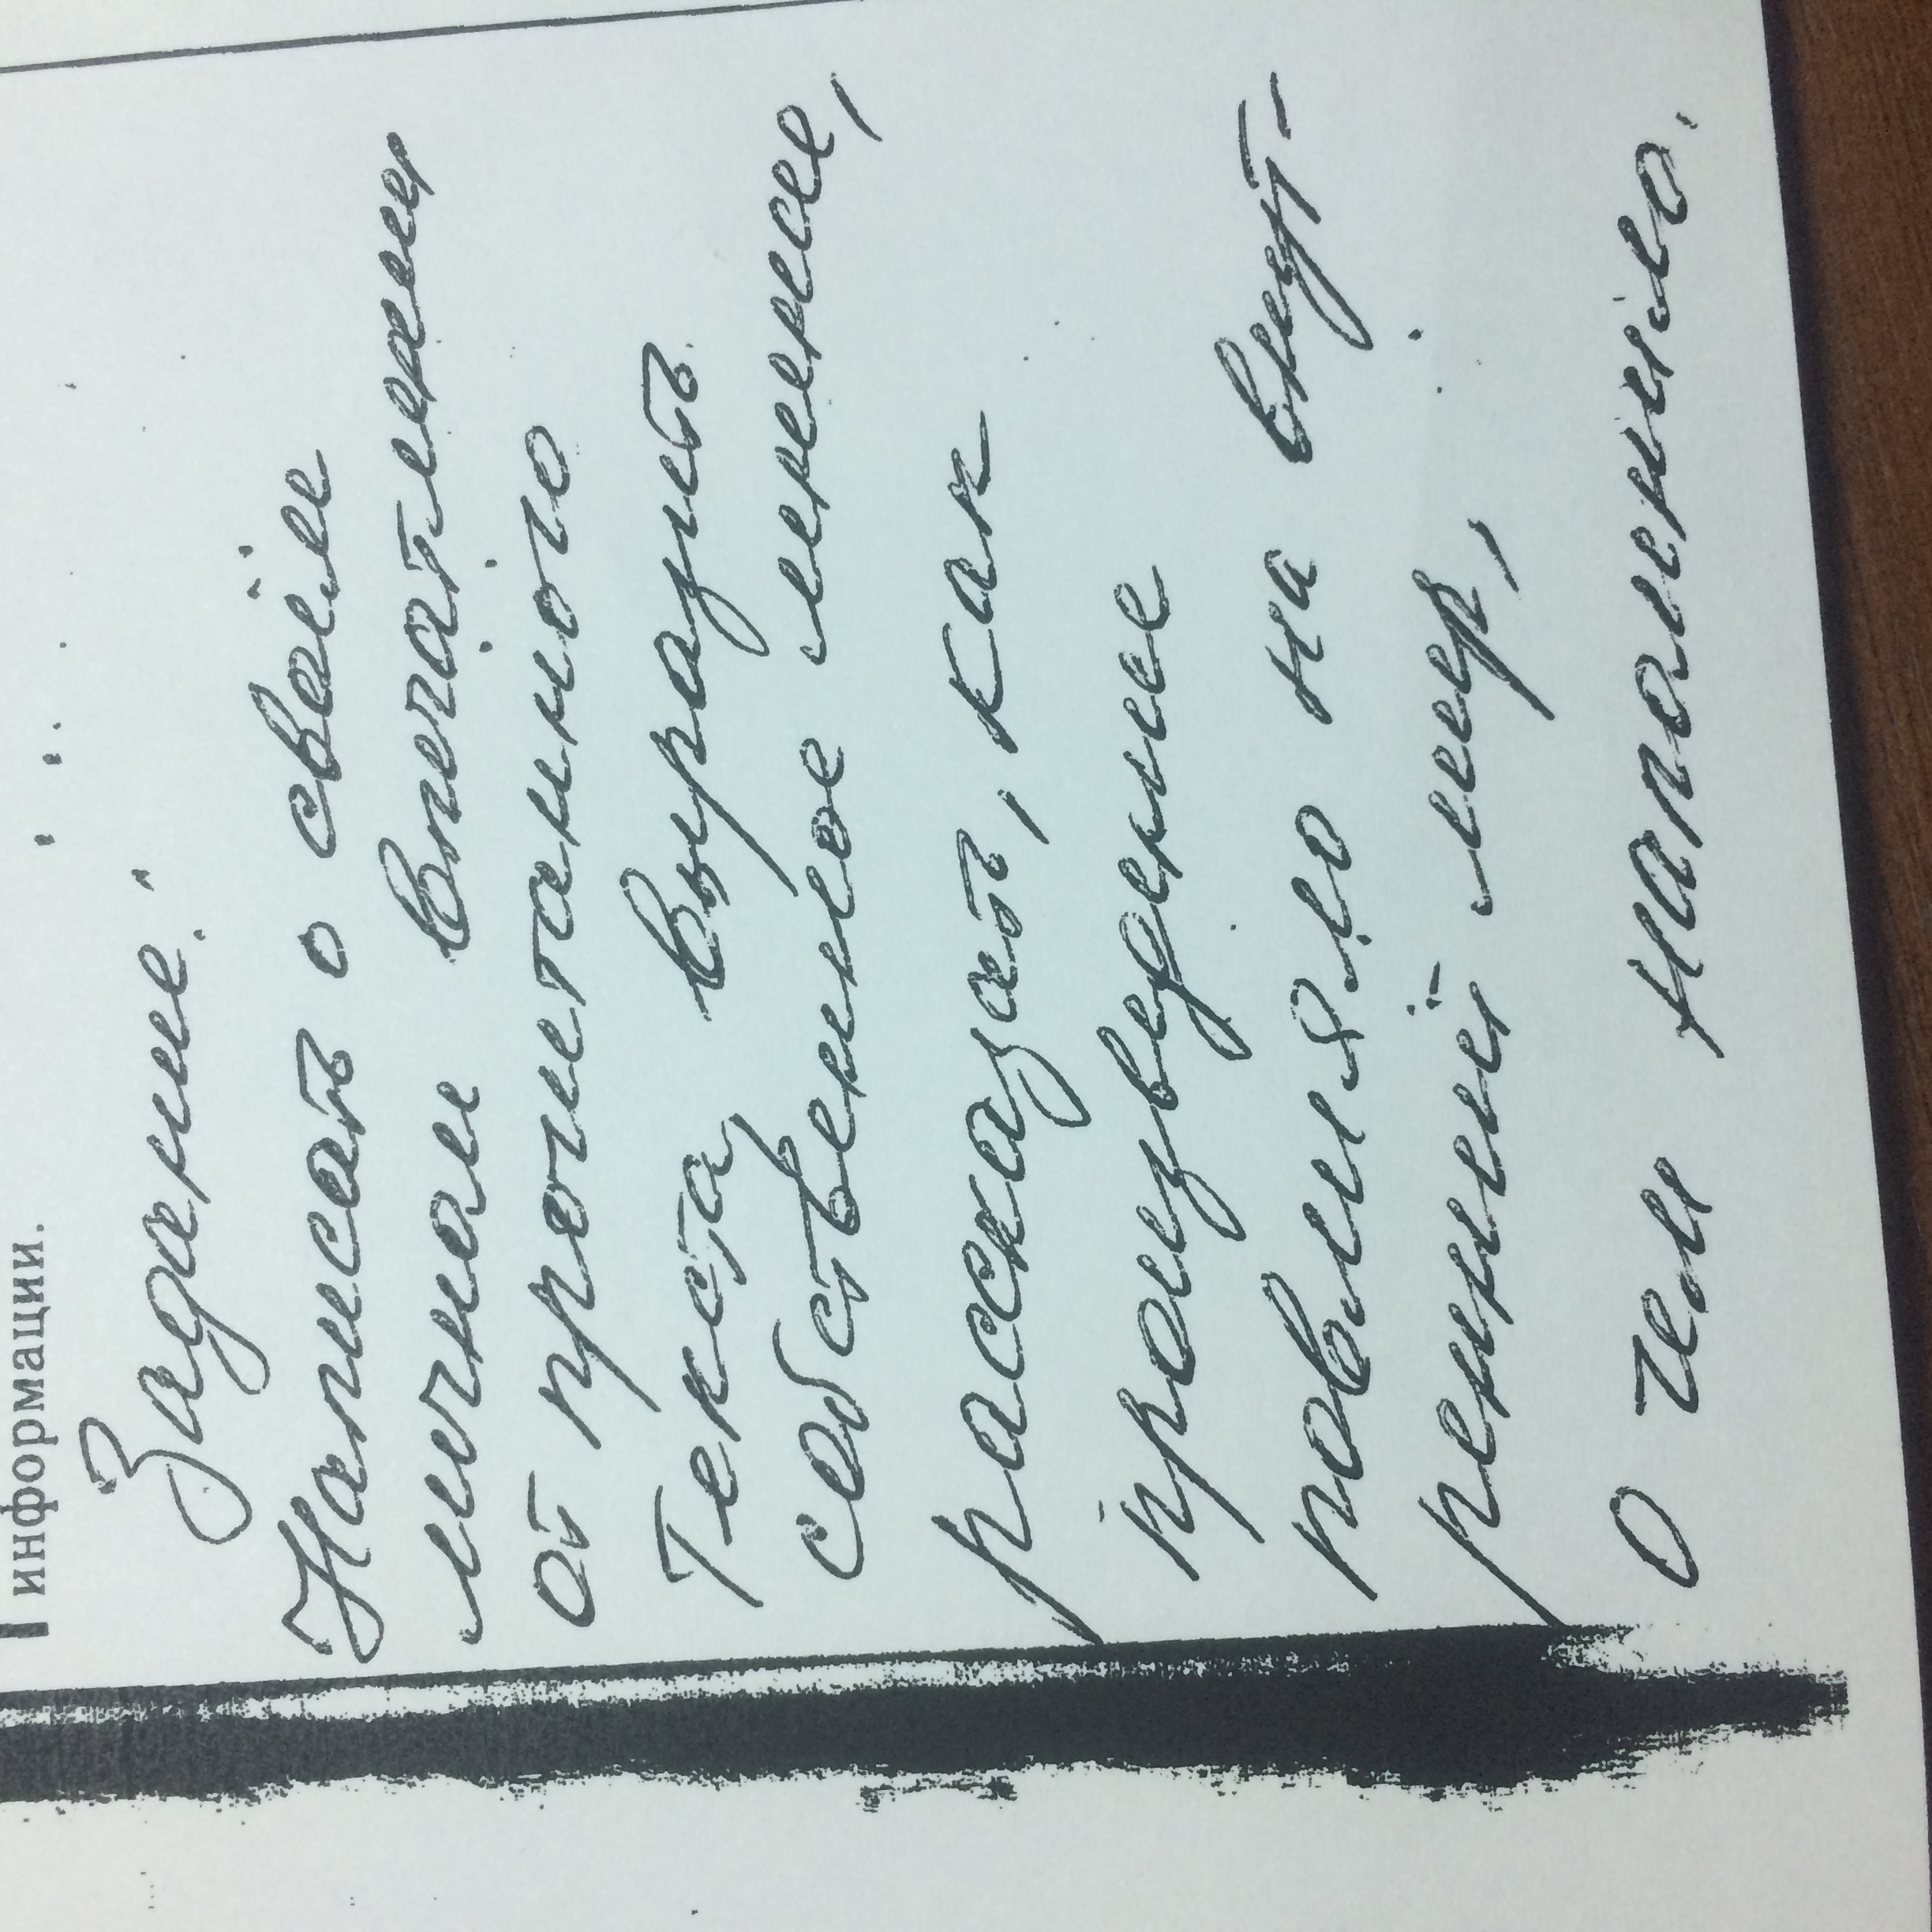 информации.
Задание:
Написать о своём
личном впечатлении
от прочитанного
текста, выразить
собственное мнение,
рассказать, как
произведение
повлияло на внут-
ренний мир,
о чём напомнило.